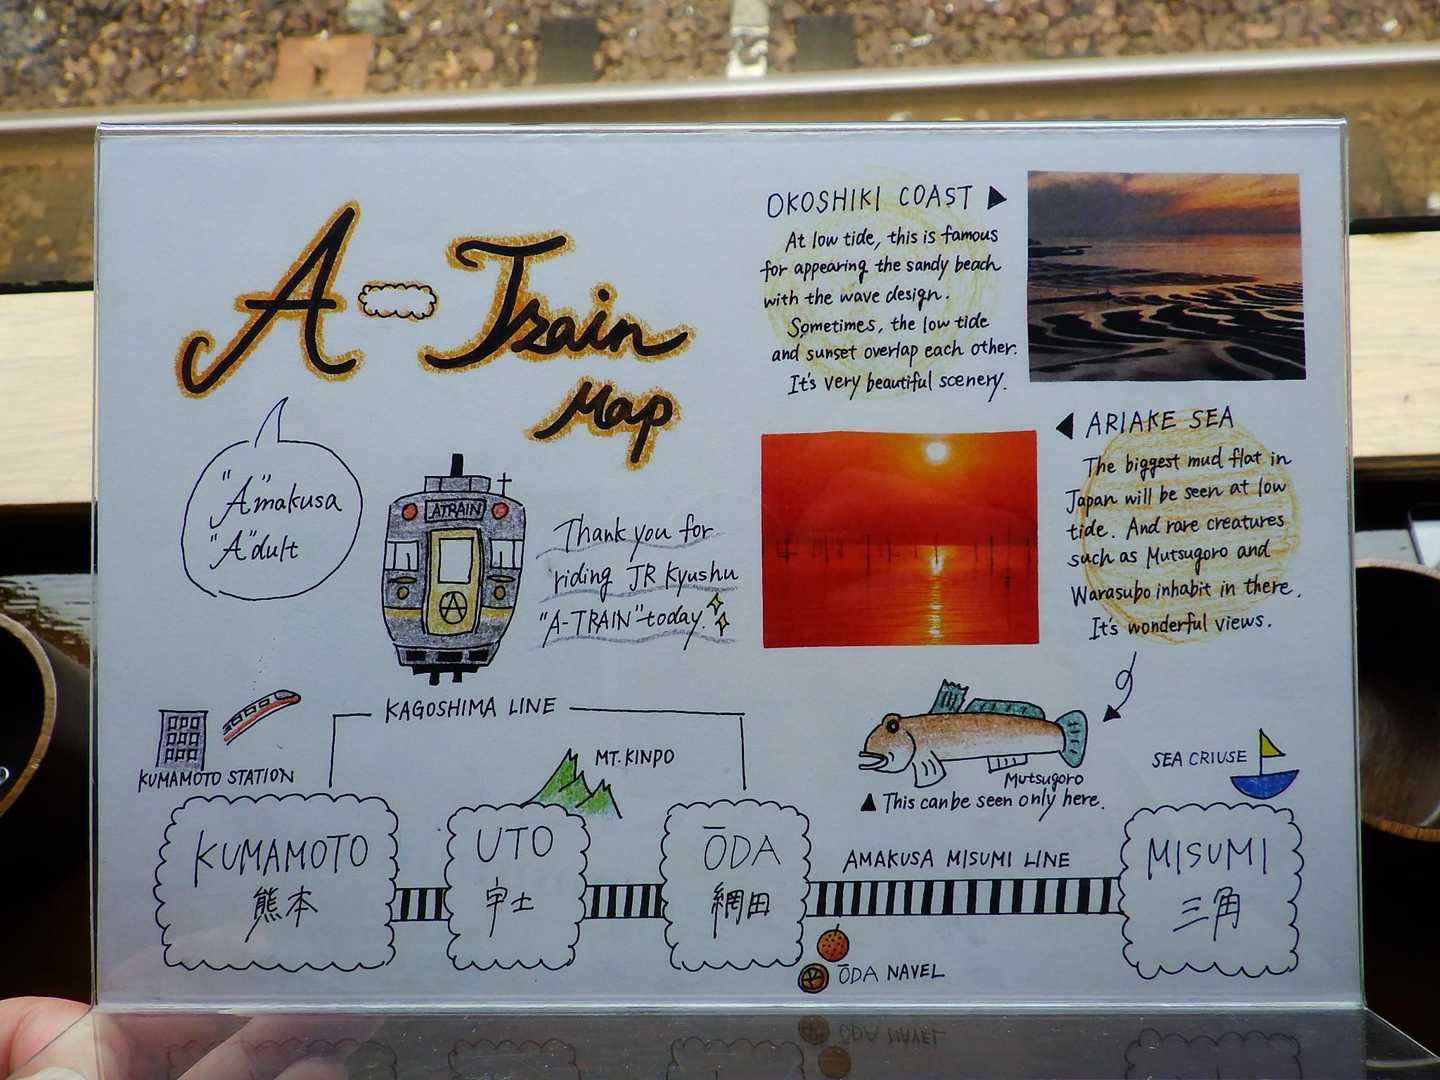 A-Train
Map
"A"makusa
"A"dult
ATRAIN
A
Thank you for
riding JR Kyushu
"A-TRAIN" today.
OKOSHIKI COAST ▶
At low tide, this is famous
for appearing the sandy beach
with the wave design.
Sometimes, the low tide
and sunset overlap each other.
It's very beautiful scenery.
◀ ARIAKE SEA
The biggest mud flat in
Japan will be seen at low
tide. And rare creatures
such as Mutsugoro and
Warasubo inhabit in there.
It's wonderful views.
Mutsugoro
▲ This can be seen only here.
KAGOSHIMA LINE
KUMAMOTO STATION
MT. KINPO
SEA CRIUSE
KUMAMOTO
熊本
UTO
宇土
ŌDA
網田
AMAKUSA MISUMI LINE
MISUMI
三角
ŌDA NAVEL